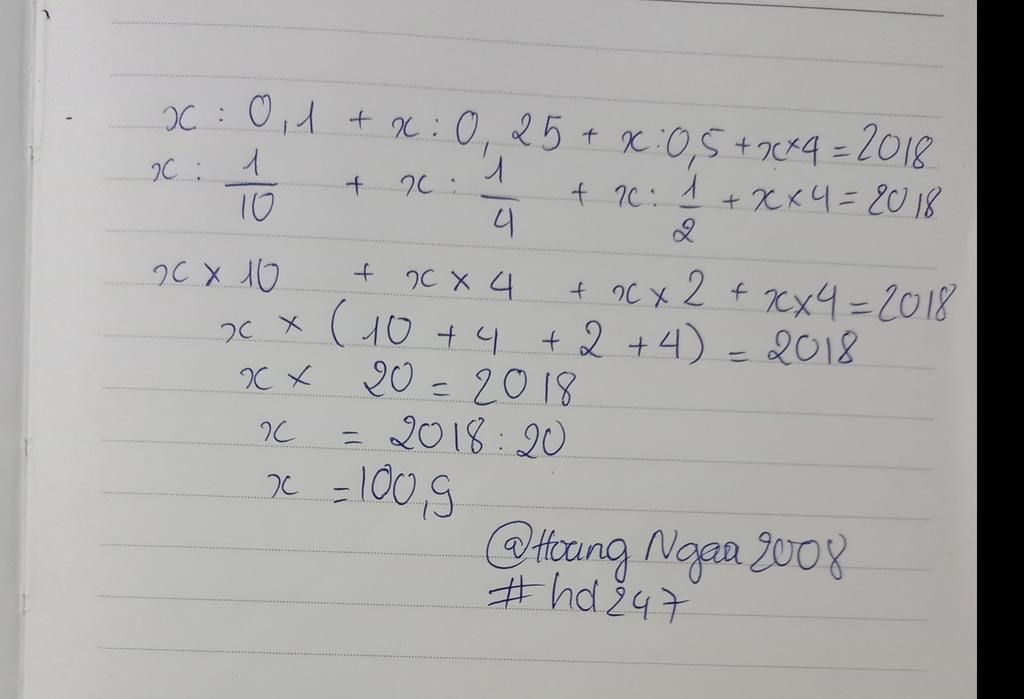 x : 0,1 + x : 0,25 + x : 0,5 + x × 4 = 2018
x : 1/10 + x : 1/4 + x : 1/2 + x × 4 = 2018
x × 10 + x × 4 + x × 2 + x × 4 = 2018
x × (10 + 4 + 2 + 4) = 2018
x × 20 = 2018
x = 2018 : 20
x = 100,9
@Hoang Ngaa 2008
#hd247